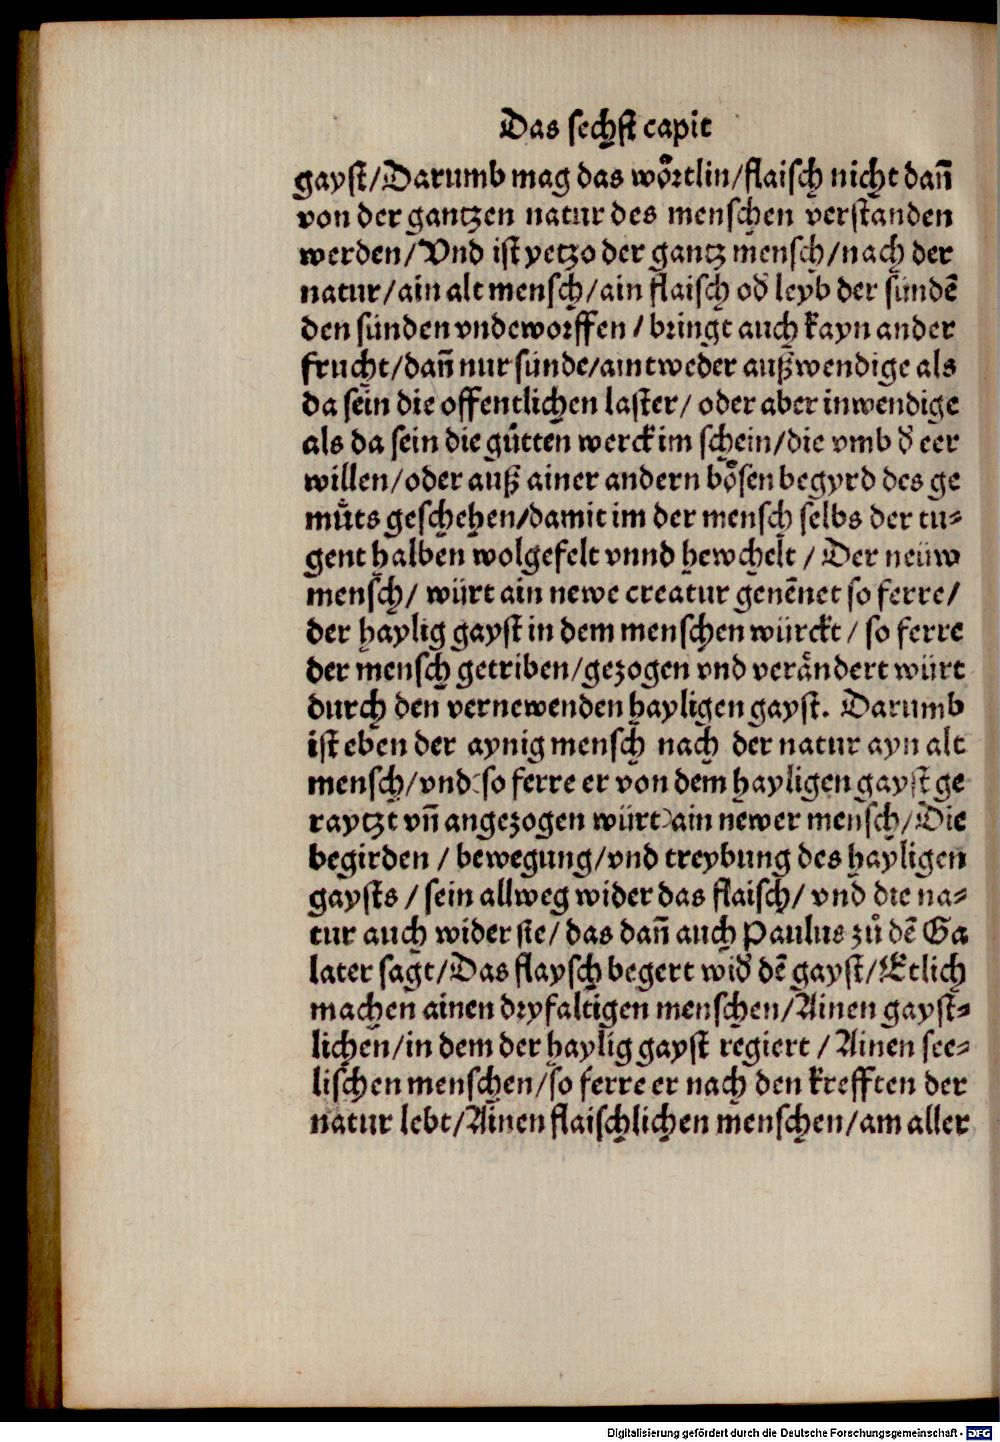 Das sechst capit
gayst/Darumb mag das woͤrtlin/flaisch nicht dañ
von der gantzen natur des menschen verstanden
werden/Vnd ist yetzo der gantz mensch/nach der
natur/ain alt mensch/ain flaisch oď leyb der sündẽ
den sünden vndeworffen/bringt auch kayn ander
frucht/dañ nur sünde/aintweder außwendige als
da sein die offentlichen laster/oder aber inwendige
als da sein die guͤtten werck im schein/die vmb ď eer
willen/oder auß ainer andern boͤsen begyrd des ge
muͤts geschehen/damit im der mensch selbs der tu⸗
gent halben wolgefelt vnnd hewchelt/Der neüw
mensch/würt ain newe creatur genẽnet so ferre/
der haylig gayst in dem menschen würckt/so ferre
der mensch getriben/gezogen vnd veraͤndert würt
durch den vernewenden hayligen gayst. Darumb
ist eben der aynig mensch nach der natur ayn alt
mensch/vnd so ferre er von dem hayligen gayst ge
raytzt vñ angezogen würt ain newer mensch/Die
begirden/bewegung/vnd treybung des hayligen
gaysts/sein allweg wider das flaisch/vnd die na⸗
tur auch wider sie/das dañ auch Paulus zuͦ dẽ Ga
later sagt/Das flaysch begert wiď dẽ gayst/Etlich
machen ainen dryfaltigen menschen/Ainen gayst⸗
lichen/in dem der haylig gayst regiert/Ainen see⸗
lischen menschen/so ferre er nach den krefften der
natur lebt/Ainen flaischlichen menschen/am aller
Digitalisierung gefördert durch die Deutsche Forschungsgemeinschaft - DFG